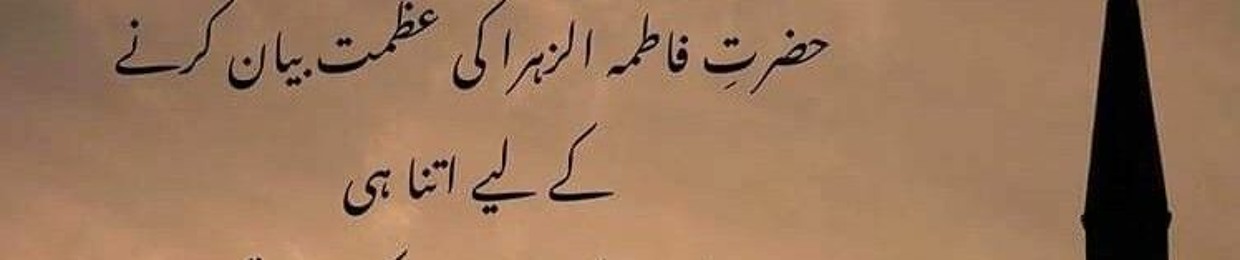 حضرتِ فاطمہ الزہرا کی عظمت بیان کرنے
کے لیے اتنا ہی